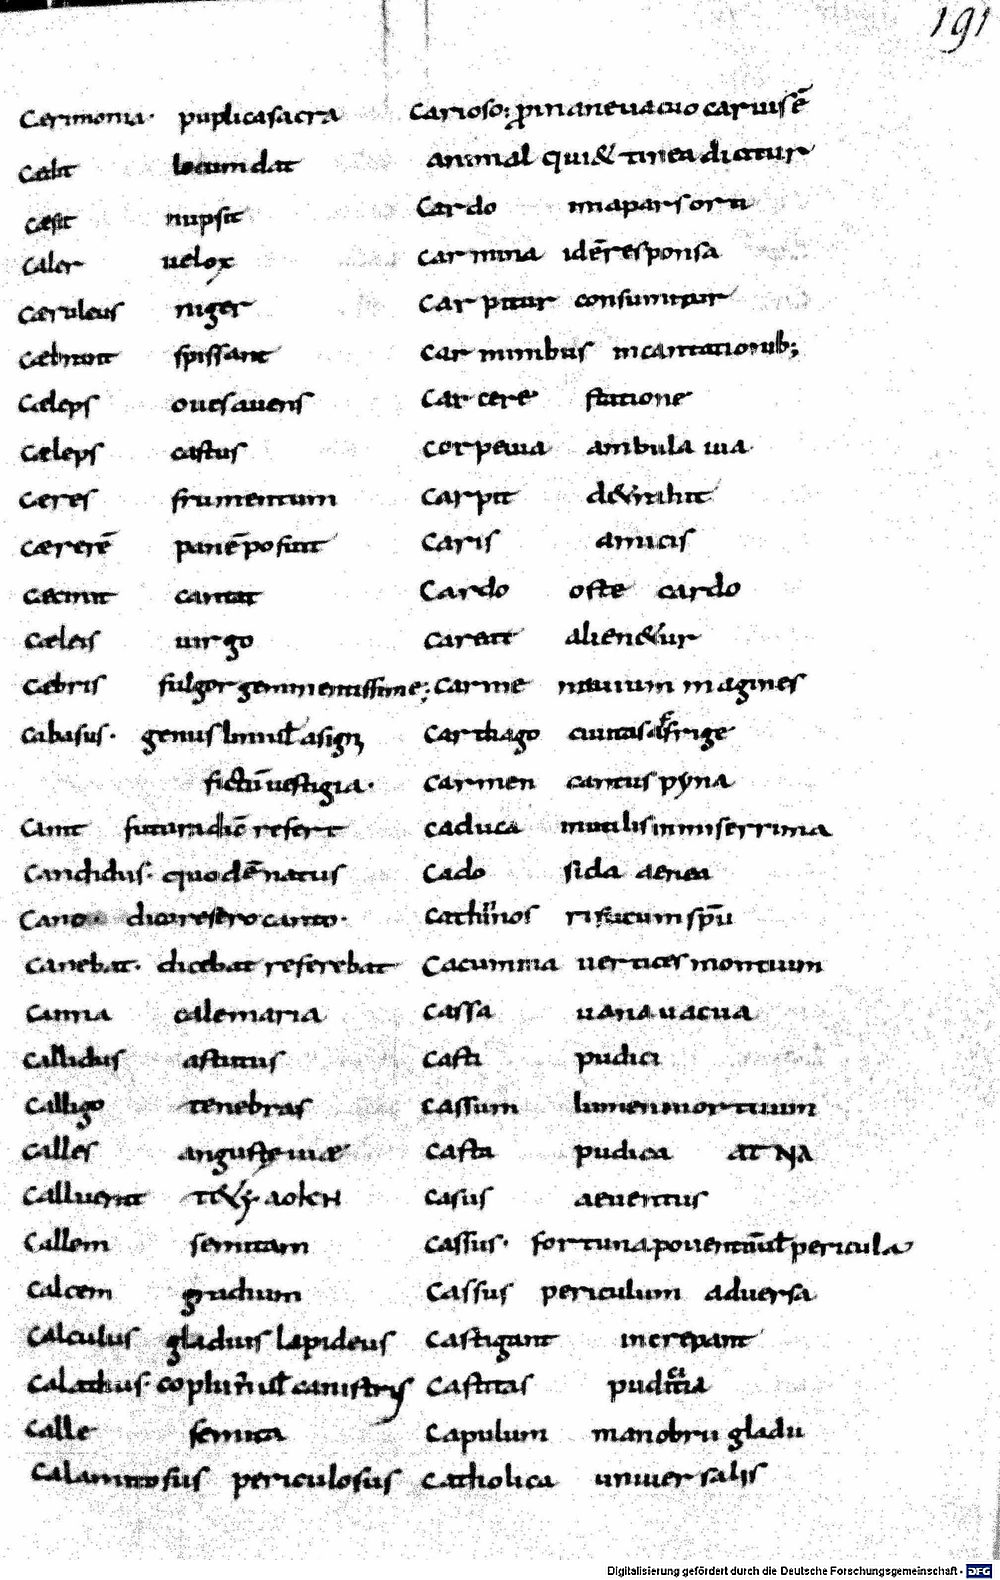 191
Cerimonia· puplica sacra
Celit locum dat
cesit nupsit
Celer uelox
Ceruleus niger
Cebrant spissant
Celeps oues auens
Celeps castus
Ceres frumentum
Cererē panē posuit
Cecinit cantat
Celeis uirgo
Cebris fulgor gemmentissime;
Cabasus· genus
fictū uestigia·
Canit futura refert
Candidus· natus
Cano· dico refero canto·
Canebat· dicebat referebat
Cuma calemaria
Callidus astutus
Calligo tenebras
Calles anguste uiæ
Calluerit
Callem semitam
Calcem gradum
Calculus lapideus
Calathus· cophin̄ uel canistris
Calle semita
Calamitosus periculosus
Carioso; pro inane uacuo caruis ē
animal qui & tinea dicitur
Cardo una pars orti
Carmina idē responsa
Carpitur consumitur
Carminibus incantationib;
Carcere statione
Corpeuia ambula uia
Carpit detrahit
Caris amicis
Cardo oste cardo
Carett
Carme nauium magines
Carthago ciuitas africe
Carmen cantus pyna
Caduca inutilis in miserrima
Cado sida aenea
risu cum spū
Cacumina uertices montium
Cassa uana uacua
Casti pudici
Cassum lumen mortuum
Casta pudica
Casus aeuentus
Cassus· fortuna pericula
Cassus periculum aduersa
Castigant increpant
Castitas pudicitia
Capulum manobriu gladii
Catholica uniuersalis
Digitalisierung gefördert durch die Deutsche Forschungsgemeinschaft - DFG